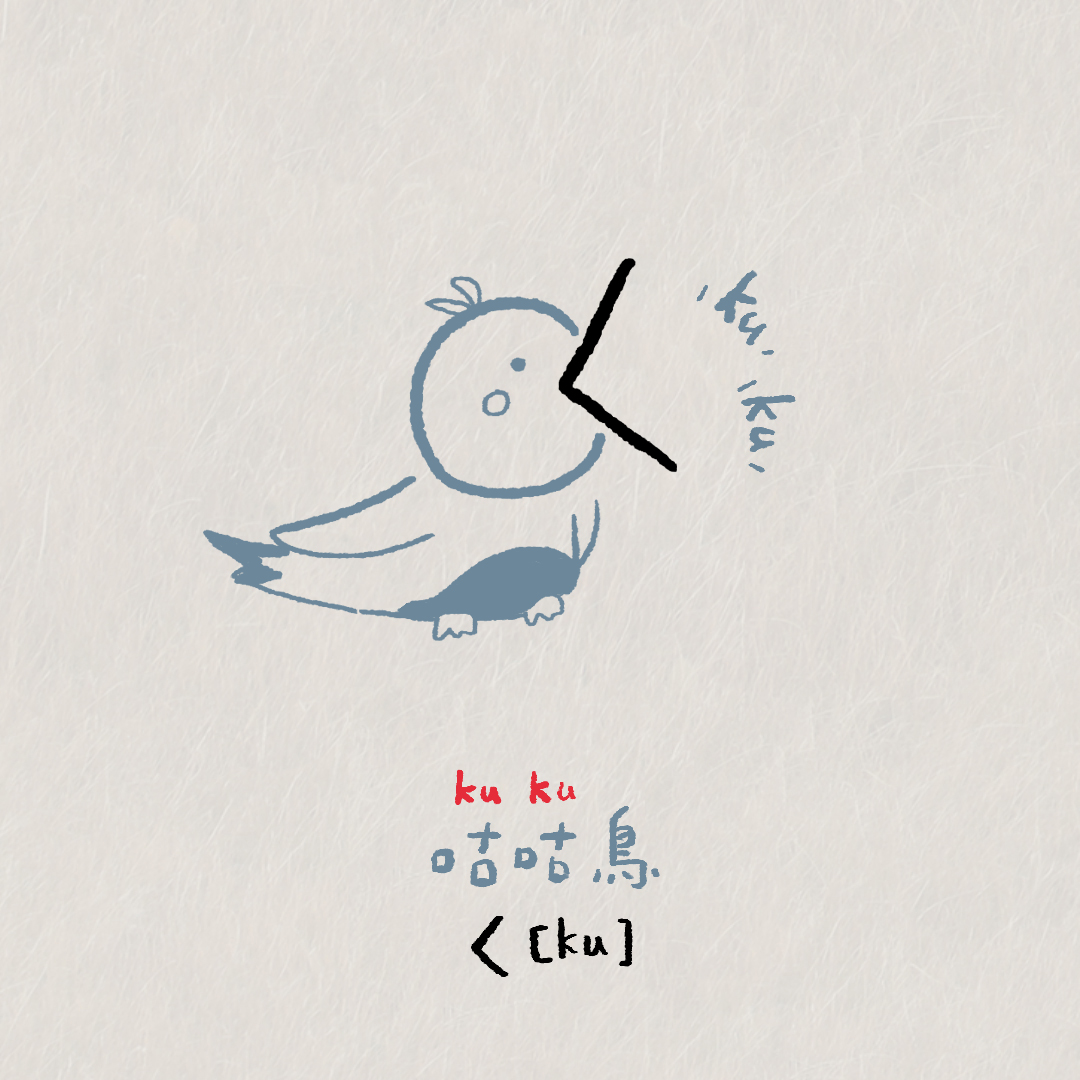 ku,
ku,
ku ku
咕咕鳥
く [ku]